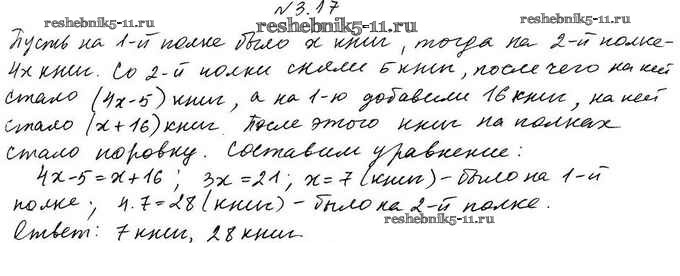 №3.17
reshebnik5-11.ru
reshebnik5-11.ru
Пусть на 1-й полке было x книг, тогда на 2-й полке-
4x книг. Со 2-й полки сняли 5 книг, после чего на ней
стало (4x-5) книг, а на 1-ю добавили 16 книг, на ней
стало (x+16) книг. После этого книг на полках
стало поровну. Составим уравнение:
4x-5=x+16; 3x=21; x=7 (книг) - было на 1-й
полке; 4.7=28 (книг) - было на 2-й полке.
reshebnik5-11.ru
Ответ: 7 книг, 28 книг.
reshebnik5-11.ru